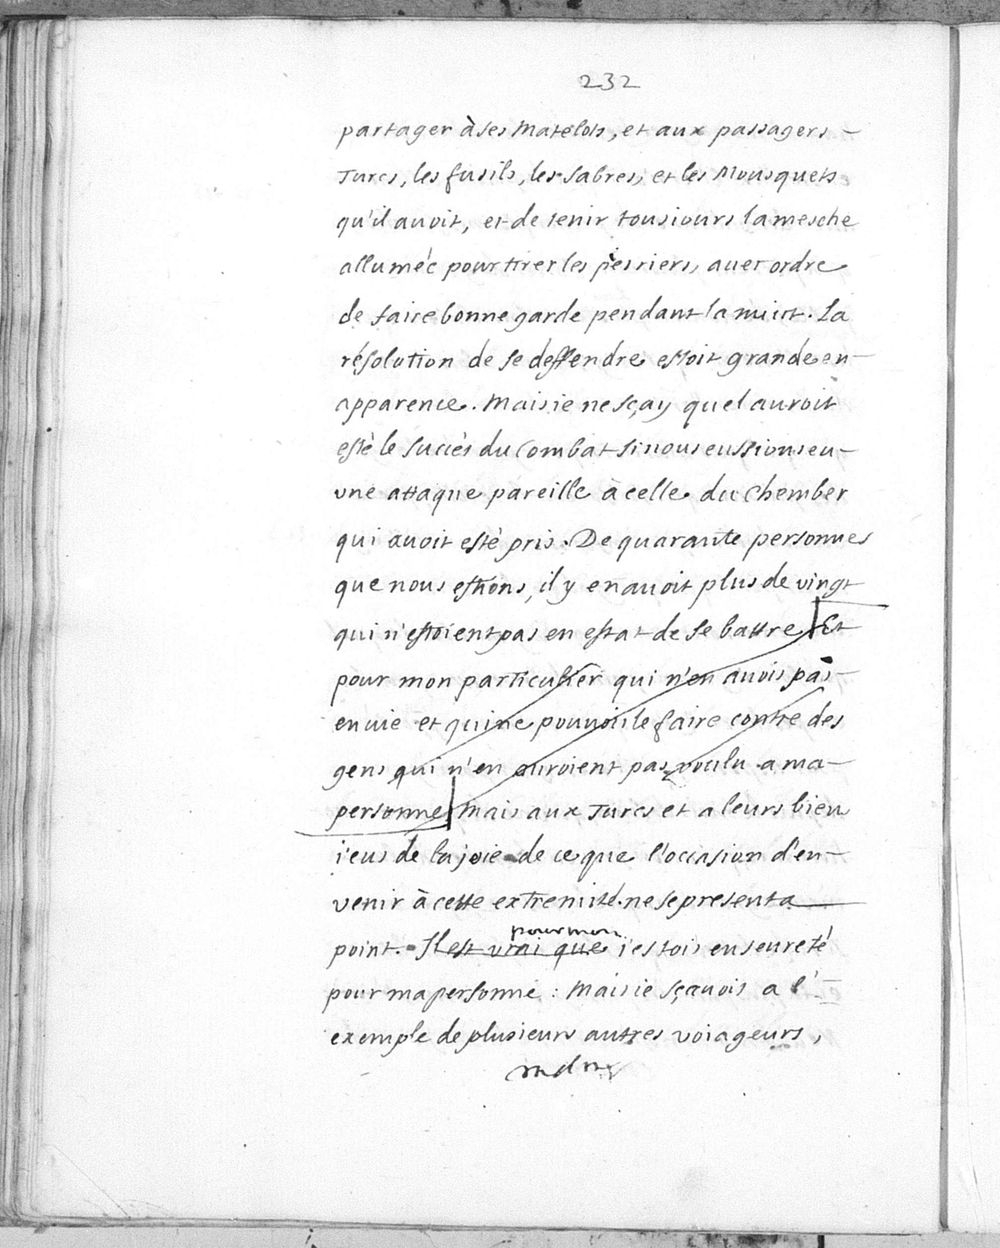 232
partager à ses Matelots, et aux passagers
Turcs, les fusils, les sabres, et les Mousquets
qu'il auoit, et de tenir tousiours la mesche
allumée pour tirer les perriers, auec ordre
de faire bonne garde pendant la nuict. La
résolution de se deffendre estoit grande en
apparence. Mais ie ne sçay quel auroit
esté le succés du combat si nous eussions eu
vne attaque pareille à celle du Chember
qui auoit esté pris. De quarante personnes
que nous estions, il y en auoit plus de vingt
qui n'estoient pas en estat de se battre, Et
pour mon particulier qui n'en auois pas
enuie et qui ne pouuois le faire contre des
gens qui n'en auroient pas voulu a ma
personne mais aux Turcs et a leurs bien
i'eus de la joie de ce que l'occasion d'en
venir à cette extremité ne se presenta
pour mon
point. Il est vrai que i'estois en seureté
pour ma personne : Mais ie sçauois a l'
exemple de plusieurs autres voiageurs,